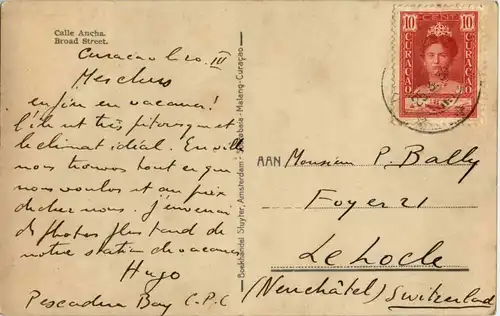 Calle Ancha.
Broad Street.
Curaçao le 20. III
Mes chers
enfin en vacances!
L'île est très pittoresque et
le climat idéal. En ville
nous trouvons tout ce que
nous voulons et au prix
de chez nous. J'enverrai
de photos plus tard de
notre station de vacances
Hugo
Pescadera Bay C.P.C
Boekhandel Sluyter, Amsterdam - Malang-Curaçao
10 CENT 10
CURAÇAO CURAÇAO
AAN Monsieur P. Bally
Foyer 21
Le Locle
(Neuchâtel) Switzerland